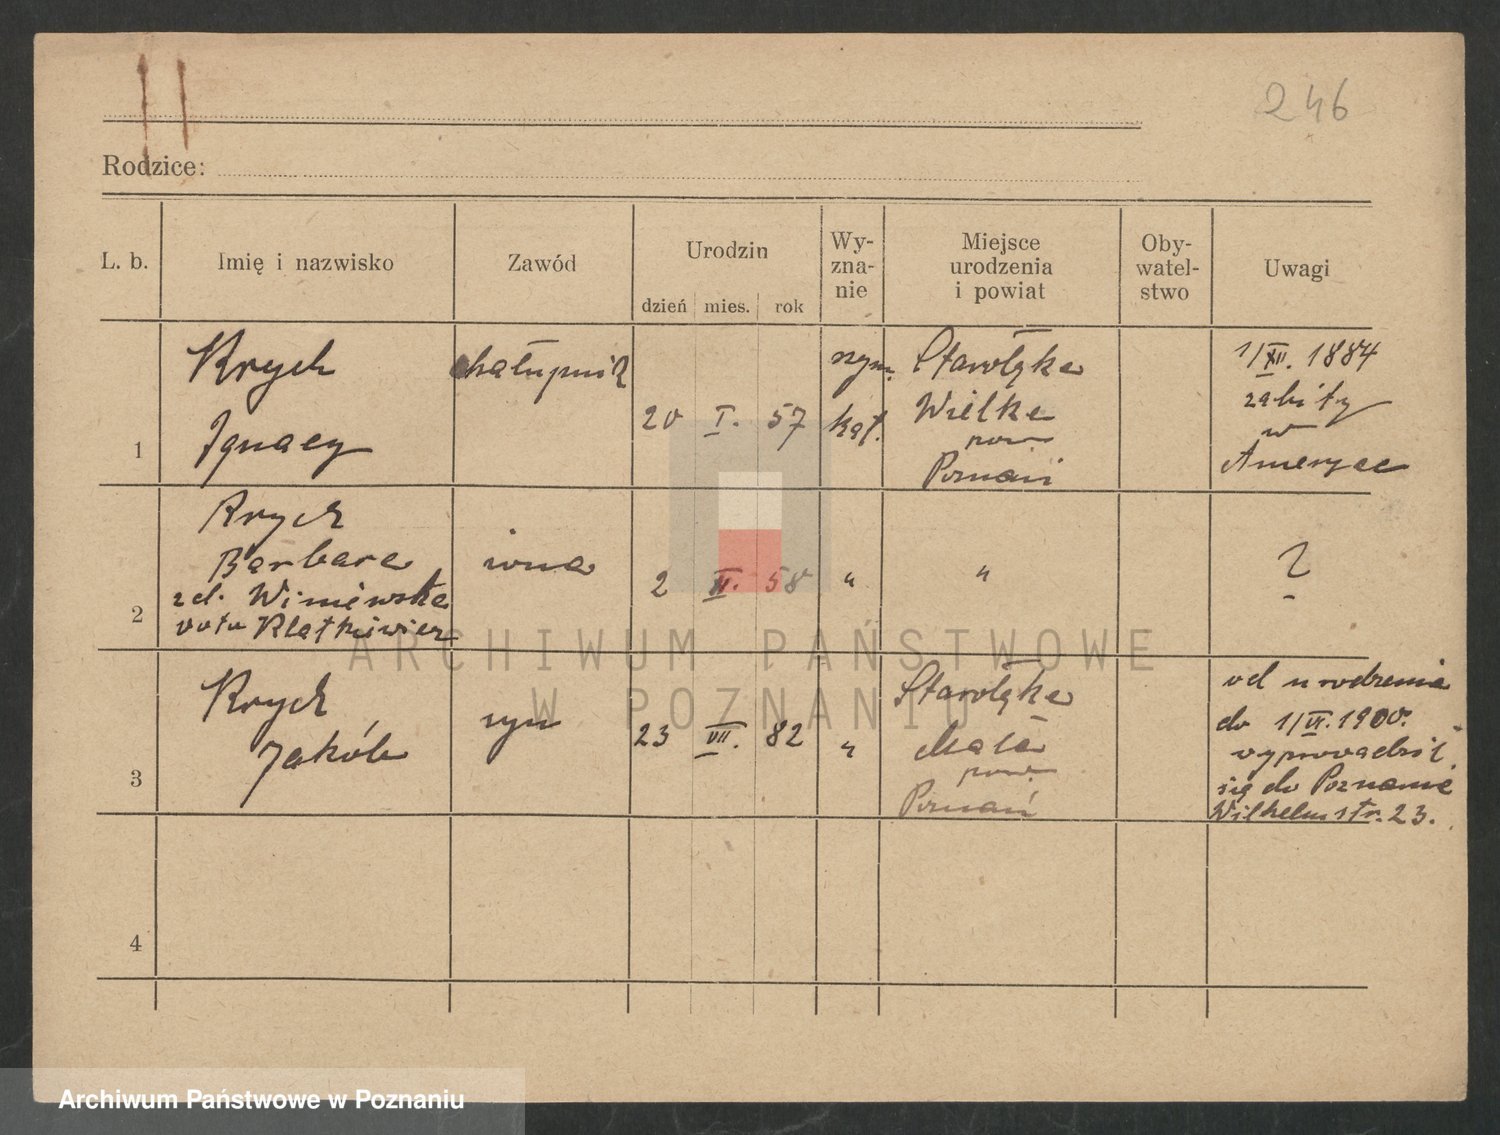 246
Rodzice:
L. b.
Imię i nazwisko
Zawód
Urodzin
dzień mies. rok
Wy-
zna-
nie
Miejsce
urodzenia
i powiat
Oby-
watel-
stwo
Uwagi
1
Krych
Ignacy
chałupnik
20 I. 57
rzym.
kat.
Starołęka
Wielka
pow
Poznań
1/XII. 1884
zabity
w
Ameryce
2
Krych
Barbara
zd. Winiewska
voto Klatkiewicz
żona
2 XI. 58
"
"
?
3
Krych
Jakób
syn
23 VII. 82
"
Starołęka
Mała
pow.
Poznań
od urodzenia
do 1/VI. 1900.
wyprowadził
się do Poznania
Wilhelmstr. 23.
4
ARCHIWUM PAŃSTWOWE
W POZNANIU
Archiwum Państwowe w Poznaniu